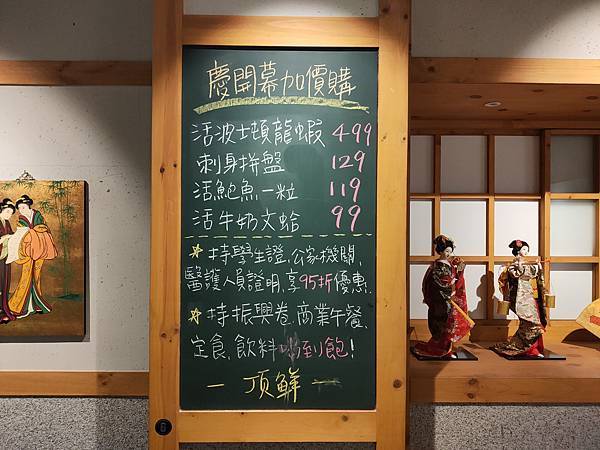 慶開幕加價購
活波士頓龍蝦 499
刺身拼盤 129
活鮑魚一粒 119
活牛奶文蛤 99
★持學生證、公家機關、
醫護人員證明、享95折優惠.
★持振興卷、商業午餐、
定食、飲料喝到飽!
一 丁頁鮮 一